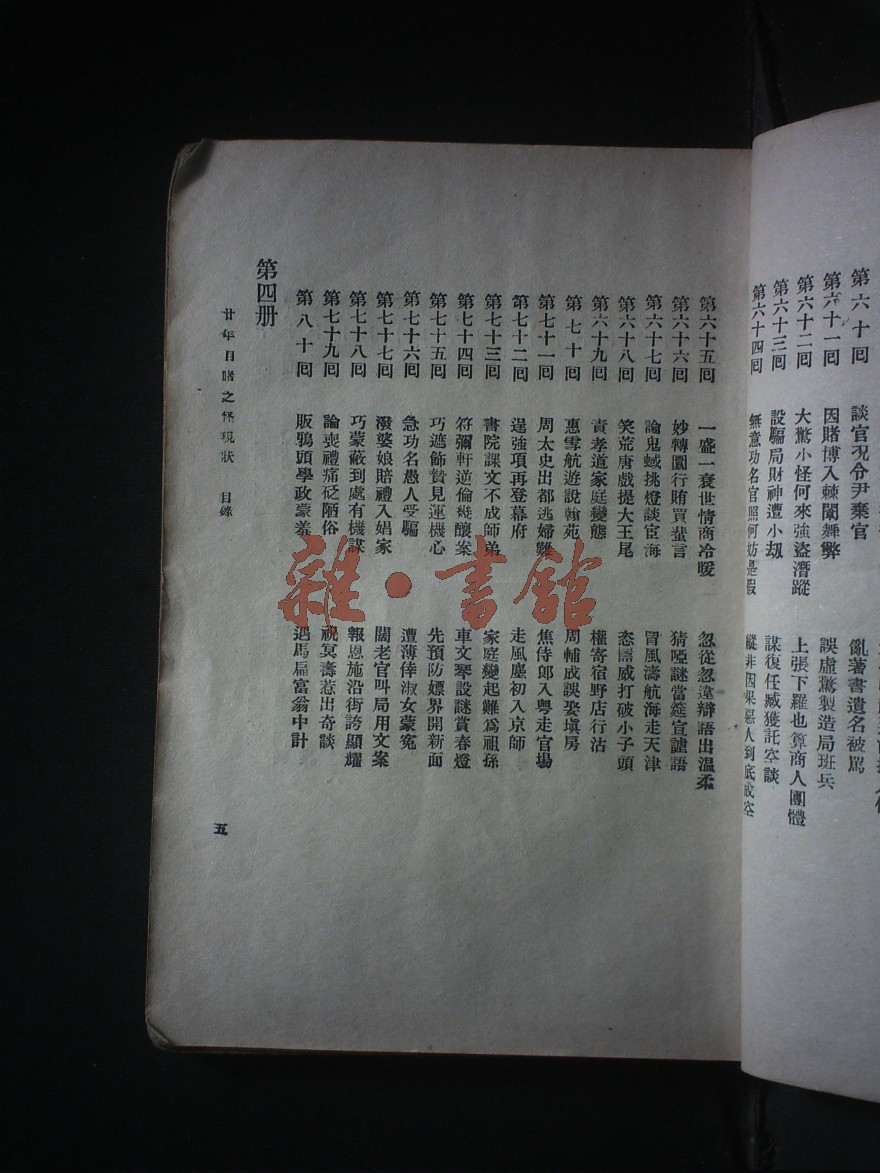 第六十回 談官况令尹棄官 亂著書遺名被罵
第六十一回 因賭博入棘闈舞弊 誤虛驚製造局班兵
第六十二回 大驚小怪何來強盜潛蹤 上張下羅也算商人團體
第六十三回 設騙局財神遭小刼 謀復任臧獲託空談
第六十四回 無意功名官照何妨是假 縱非因果惡人到底成空
第六十五回 一盛一衰世情商冷暖 忽從忽違辯語出溫柔
第六十六回 妙轉圜行賄買蜚言 猜啞謎當筵宣謔語
第六十七回 論鬼蜮挑燈談宦海 冒風濤航海走天津
第六十八回 笑荒唐戲提大王尾 恣囂威打破小子頭
第六十九回 責孝道家庭變態 權寄宿野店行沽
第七十回 惠雪航遊說翰苑 周輔成誤娶塡房
第七十一回 周太史出都逃婦難 焦侍郎入粵走官場
第七十二回 逞強項再登幕府 走風塵初入京師
第七十三回 書院課文不成師弟 家庭變起難爲祖孫
第七十四回 符彌軒逆倫幾釀案 車文琴設謎賞春燈
第七十五回 巧遮飾贄見運機心 先預防嫖界開新面
第七十六回 急功名愚人受騙 遭薄倖淑女蒙寃
第七十七回 潑婆娘賠禮入娼家 闊老官叫局用文案
第七十八回 巧蒙蔽到處有機謀 報恩施沿街誇顯耀
第七十九回 論喪禮痛砭陋俗 祝冥壽惹出奇談
第八十回 販鴉頭學政蒙羞 遇馬扁富翁中計
第四册
廿年目睹之怪現狀 目錄
五
雜·書館